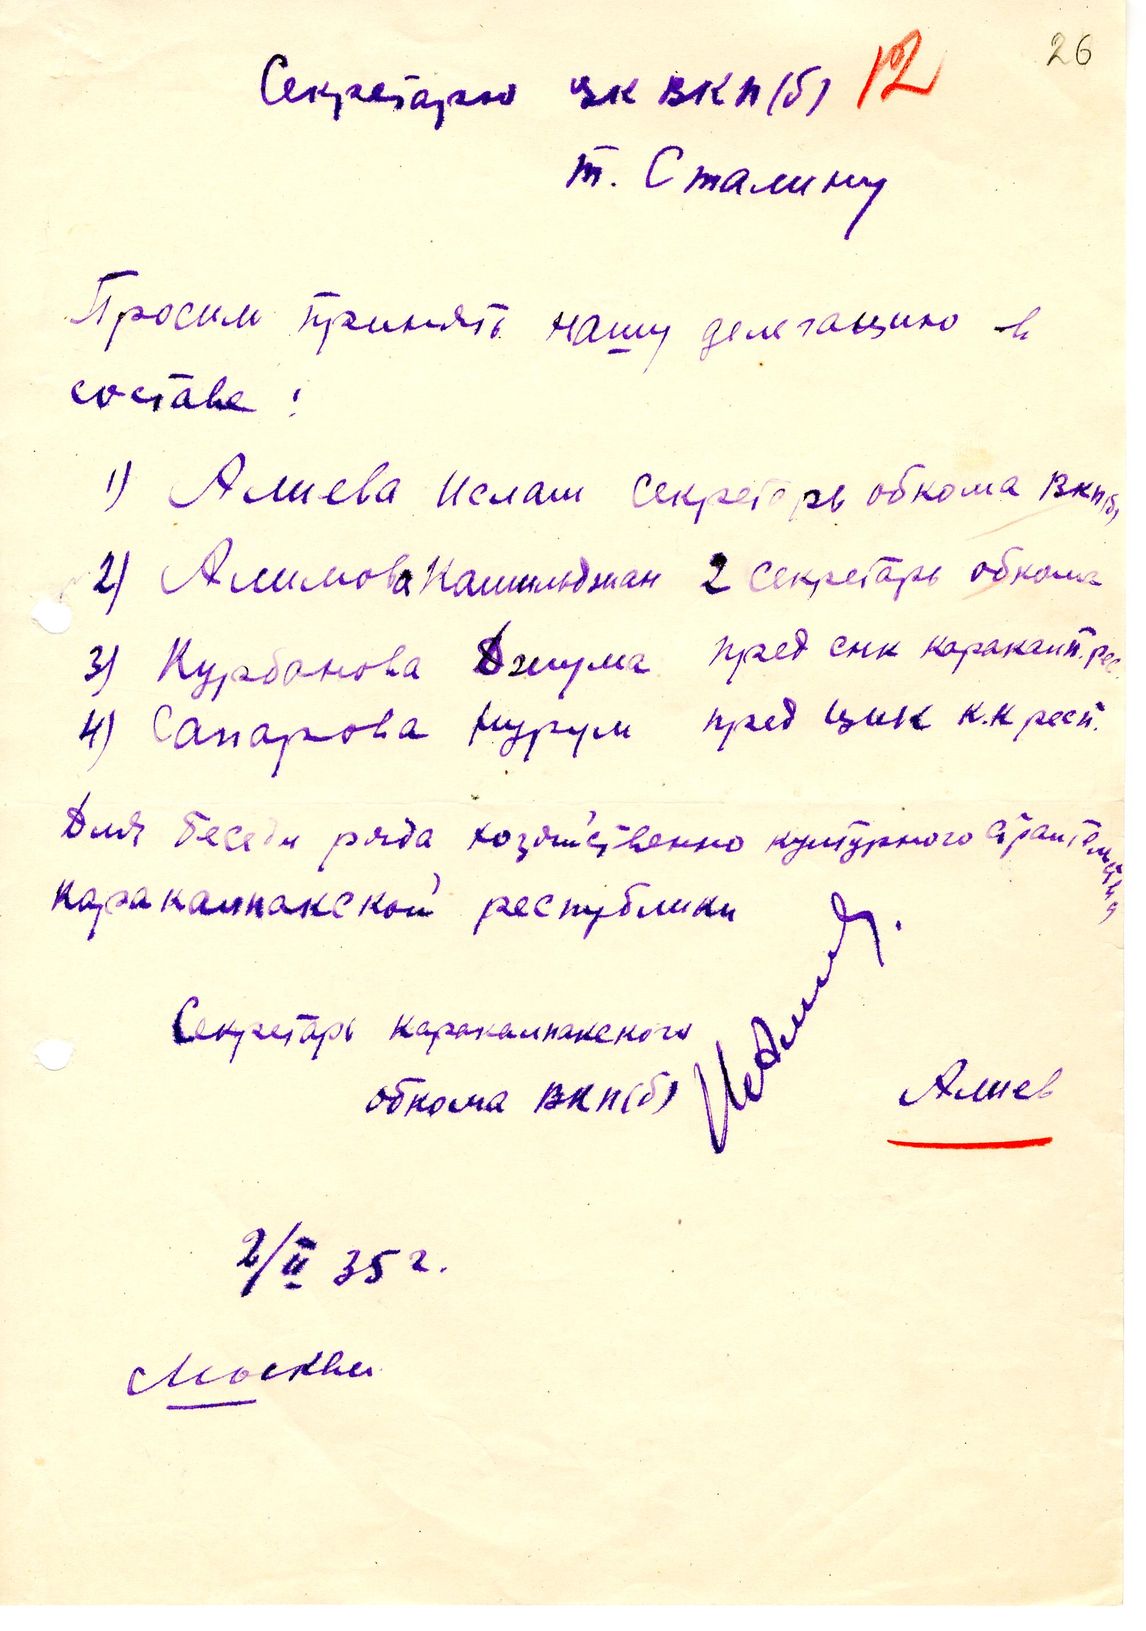 26
Секретарю ЦК ВКП(б) 12
т. Сталину
Просим принять нашу делегацию в
составе:
1) Алиева Ислам секретарь обкома ВКП(б)
2) Алимова Камильджан 2 секретарь обкома
3) Курбанова Джума пред снк каракалп. рес.
4) Сапарова Нурум пред ЦИК К.К респ.
Для беседы ряда хозяйственно культурного строительства
Каракалпакской республики
Секретарь Каракалпакского
обкома ВКП(б) Алиев
2/II 35 г.
Москва